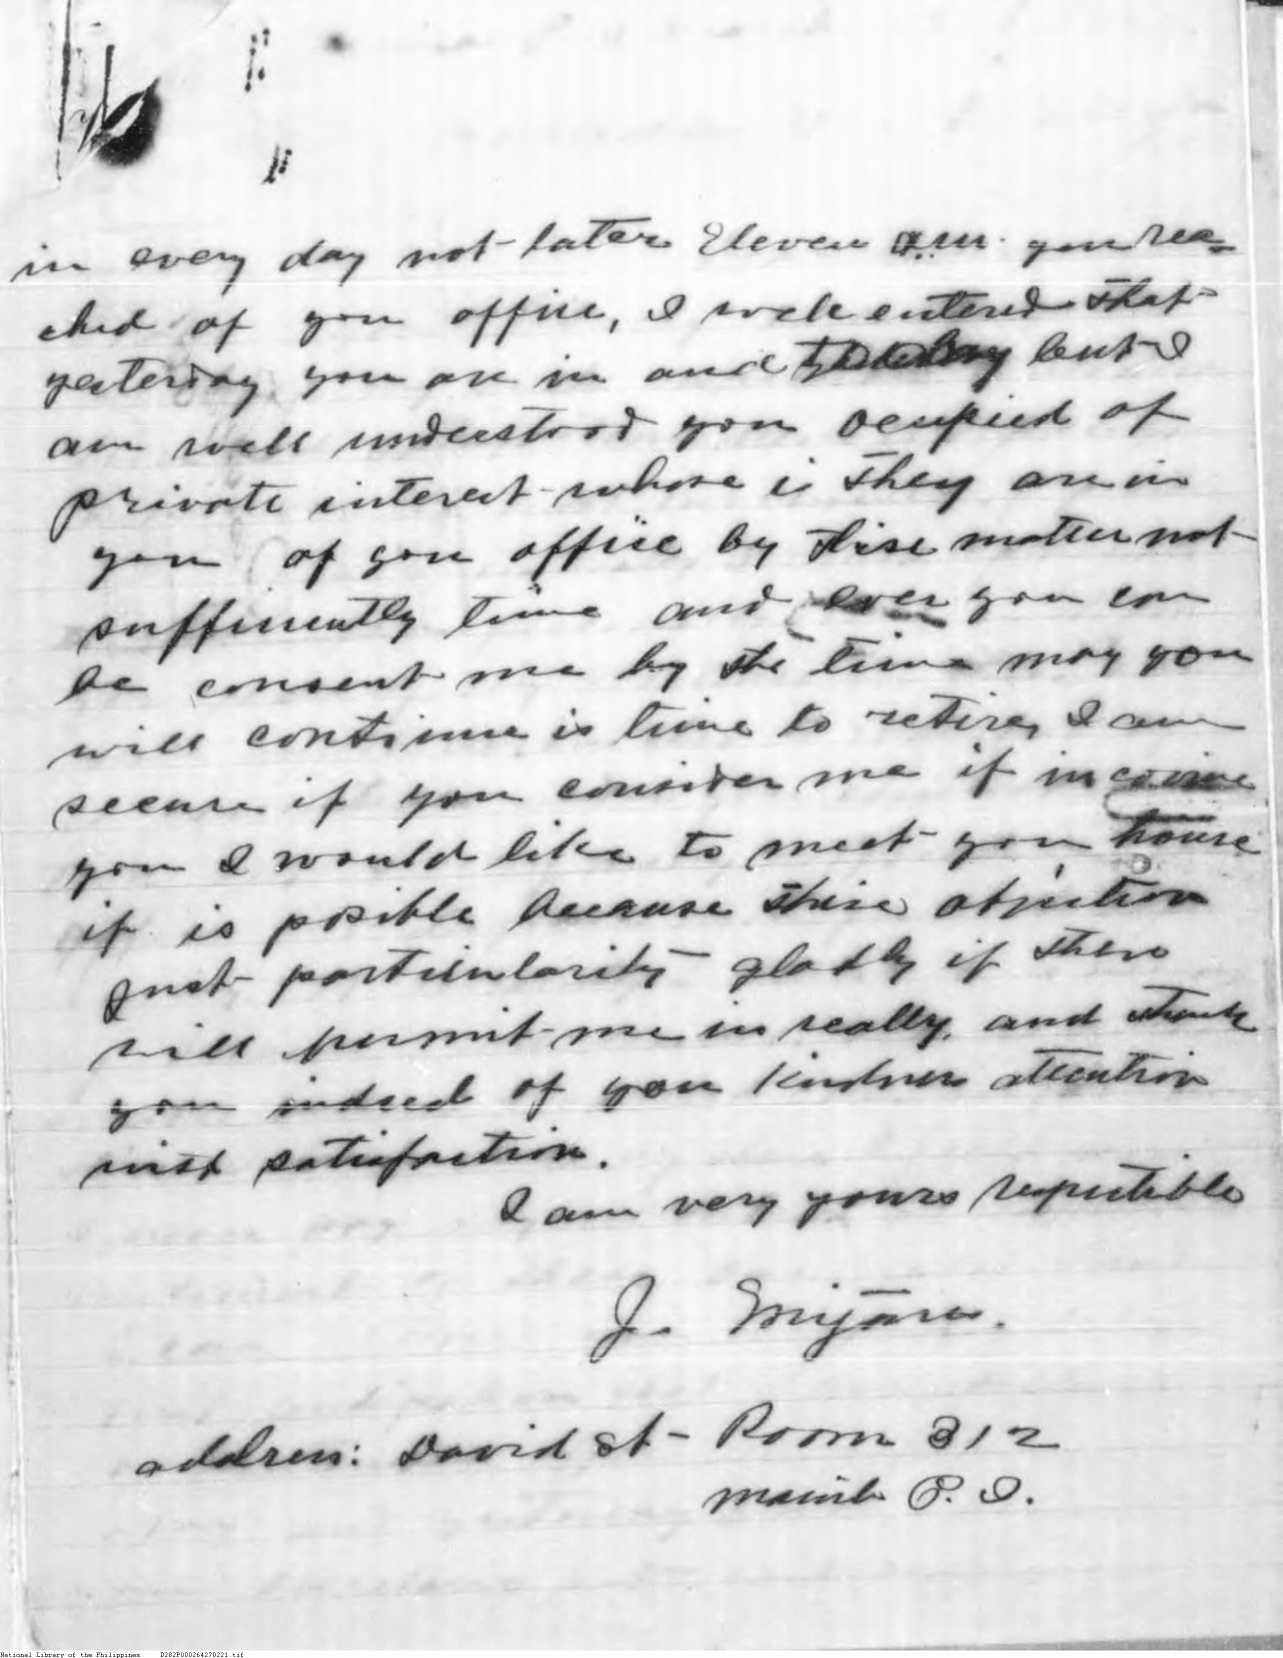 in every day not later Eleven a.m. you rea-
ched of you office, I well entered that
yesterday you are in and today but I
am well understood you ocupied of
private interest whose is they are in
you of you office by thise matter not
sufficiently time and ever you can
be consent me by the time may you
will continue is time to retire, I am
secure if you consider me if in
you I would like to meet you house
if is posible because thise objection
just particularity gladly if there
will permit me in really, and thank
you indeed of you kindness attention
with satisfaction.
I am very yours respectible
J. Mijares.
address: David St- Room 312
Manila P. I.
National Library of the Philippines D282P000264270221.tif